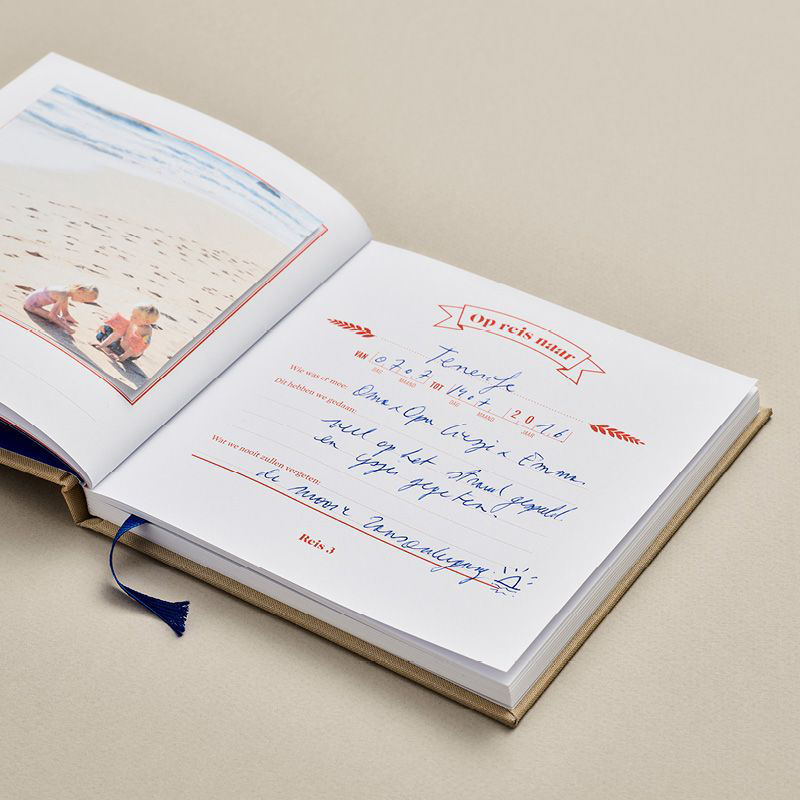 Op reis naar
Tenerife
VAN 07 07 TOT 14 07 2016
DAG MAAND DAG MAAND JAAR
Wie was er mee: Oma & Opa Lizzi & Emma.
Dit hebben we gedaan:
veel op het strand gespeeld.
en ijsjes gegeten.
Wat we nooit zullen vergeten:
de mooie zonsondergang.
Reis 3